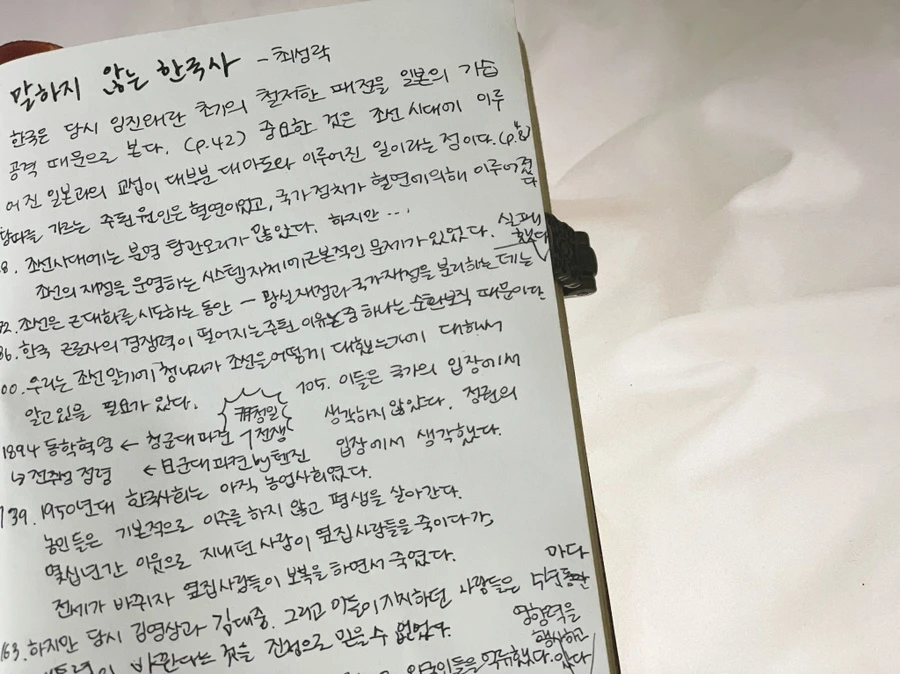 말하지 않는 한국사 - 최성락
한국은 당시 임진왜란 초기의 철저한 패전을 일본의 기습
공격 때문으로 본다. (p.42) 중요한 것은 조선시대에 이루
어진 일본과의 교섭이 대부분 대마도와 이루어진 일이라는 점이다.
가르는 주된 원인은 혈연이었고, 국가 정치가 혈연에 의해 이루어졌다
8. 조선시대에는 분명 탐관오리가 많았다. 하지만 ...
조선의 재정을 운영하는 시스템 자체에 근본적인 문제가 있었다.
92. 조선은 근대화를 시도하는 동안 - 왕실재정과 국가재정을 분리하는 데는 실패했다
96. 한국 근로자의 경쟁력이 떨어지는 주된 이유 중 하나는 때문이다
00. 우리는 조선말기에 청나라가 조선을 어떻게 대했는가에 대해서
알고 있을 필요가 있다.
105. 이들은 국가의 입장에서
생각하지 않았다. 정련의
입장에서 생각했다.
1894 동학혁명 ← 청군대파견 ㄱ 청일전쟁
↳ 전주성 점령 ← 日군대파견 by 톈진
139. 1950년대 한국사회는 아직 농업사회였다.
농민들은 기본적으로 이주를 하지 않고 평생을 살아간다.
몇십년간 이웃으로 지내던 사람이 옆집사람들을 죽이다가,
전세가 바뀌자 옆집사람들이 보복을 하면서 죽였다.
163. 하지만 당시 김영삼과 김대중. 그리고 이들이 지지하던 사람들은 5년동안
마다
영향력을
행사하고
바뀐다는 것을 진정으로 믿을 수 없었다.